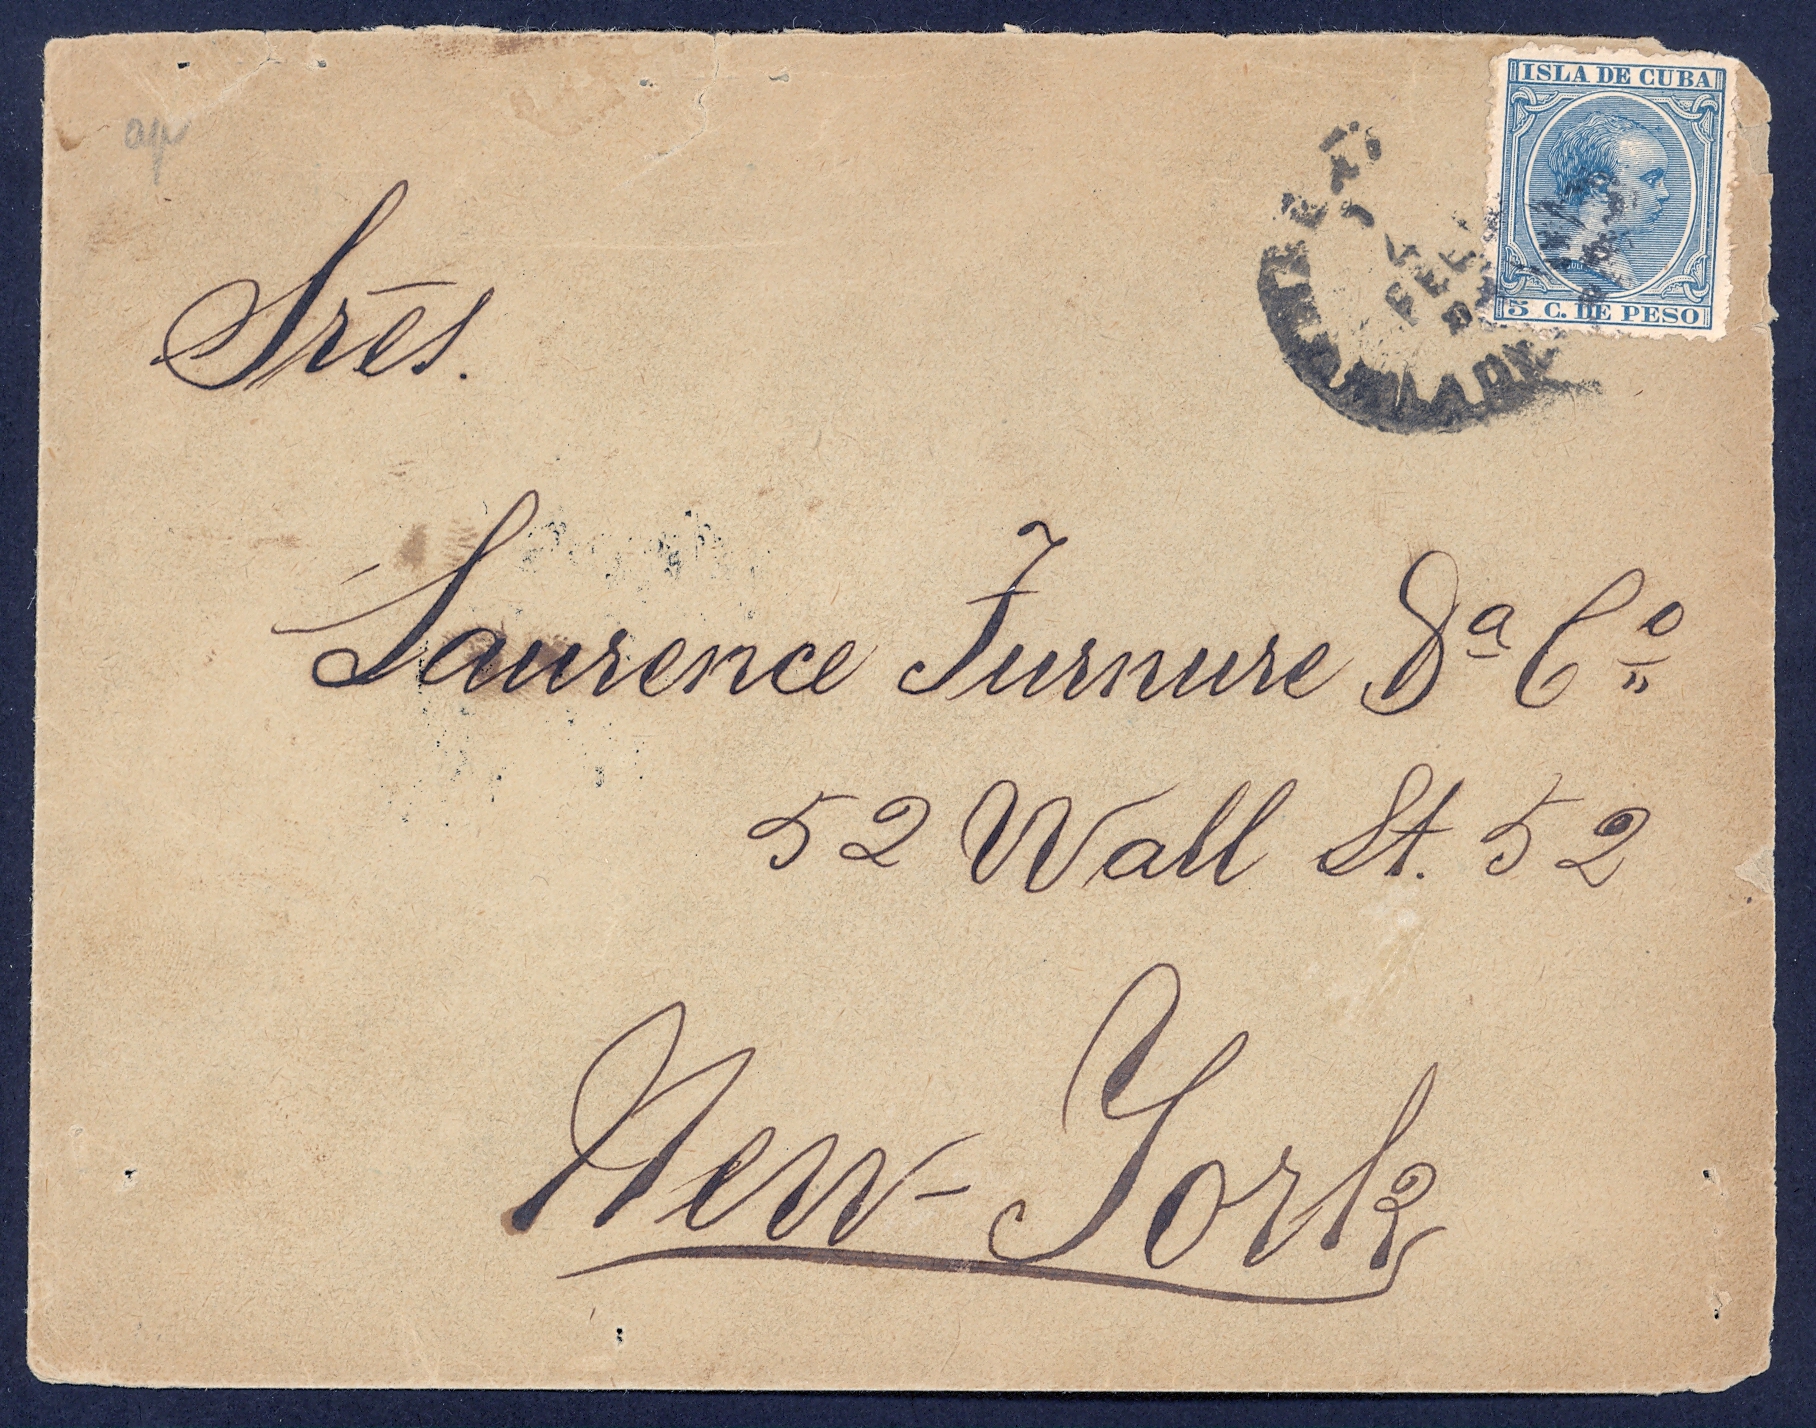 ap
ISLA DE CUBA
5 C. DE PESO
FEB
Srēs.
Laurence Turnure & Cº
52 Wall St. 52
New-York